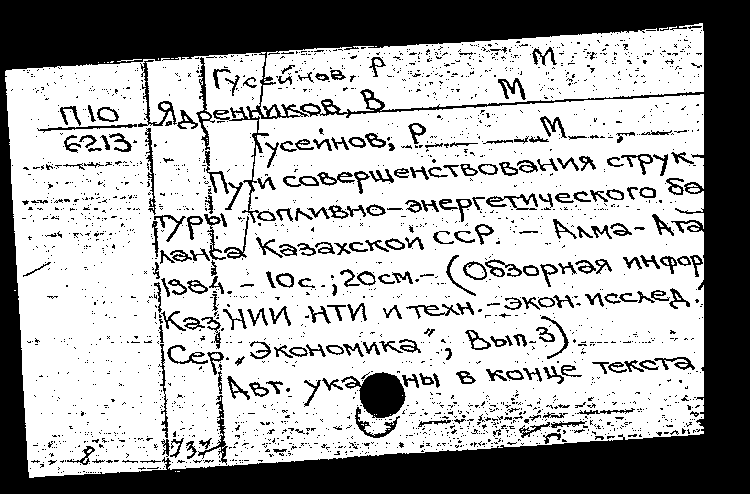 Гусейнов, Р М
П10 Ядренников, В М
6213 Гусейнов, Р М ,
Пути совершенствования струк-
туры топливно-энергетического ба
ланса Казахской ССР. - Алма-Ата
1984. - 10с.; 20см. - (Обзорная инфор
Каз НИИ НТИ и техн.-экон. исслед.
Сер. „Экономика"; Вып. 3).
Авт. ука ны в конце текста.
8 737